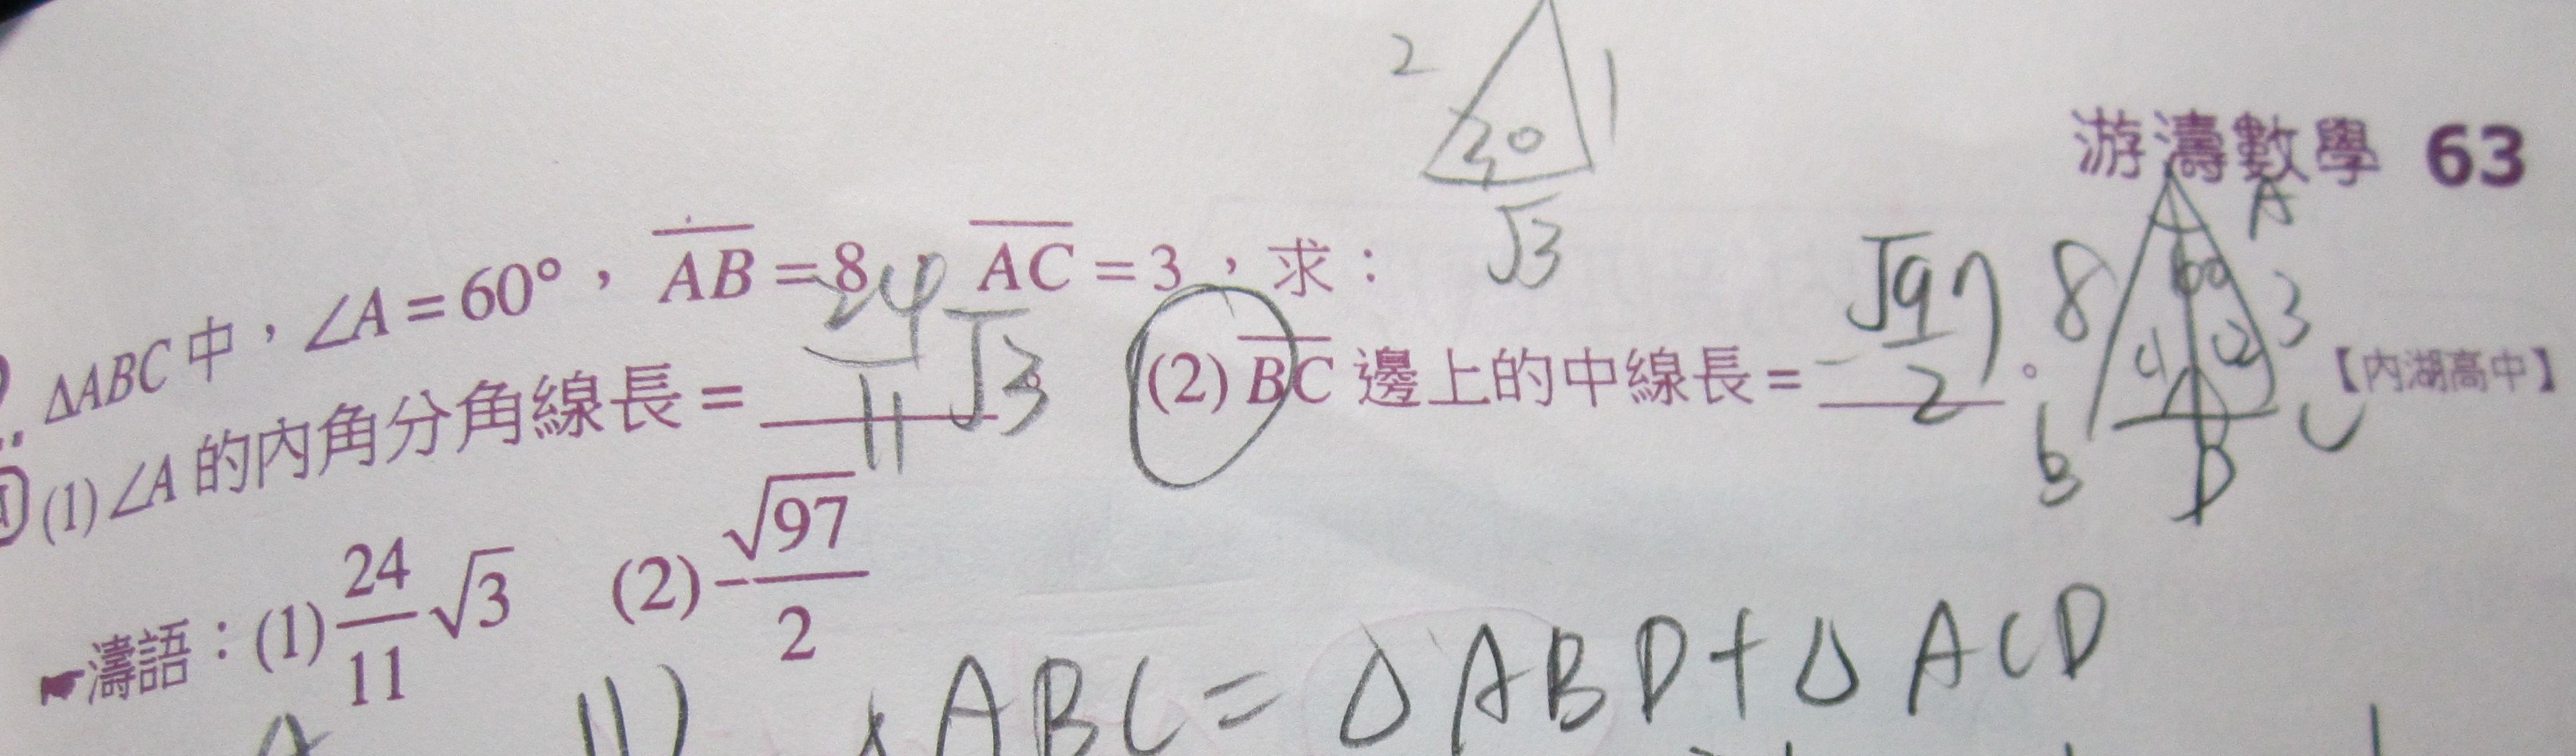 2
1
30
√3
游濤數學 63
ΔABC 中，∠A = 60°， AB = 8， AC = 3，求：
(1) ∠A 的內角分角線長 = 24/11 √3。 (2) BC 邊上的中線長 = -√97/2。 【內湖高中】
A
60
8
3
4 2
B D C
☛濤語：(1) 24/11 √3 (2) -√97/2
(1) ABC = Δ ABD + Δ ACD